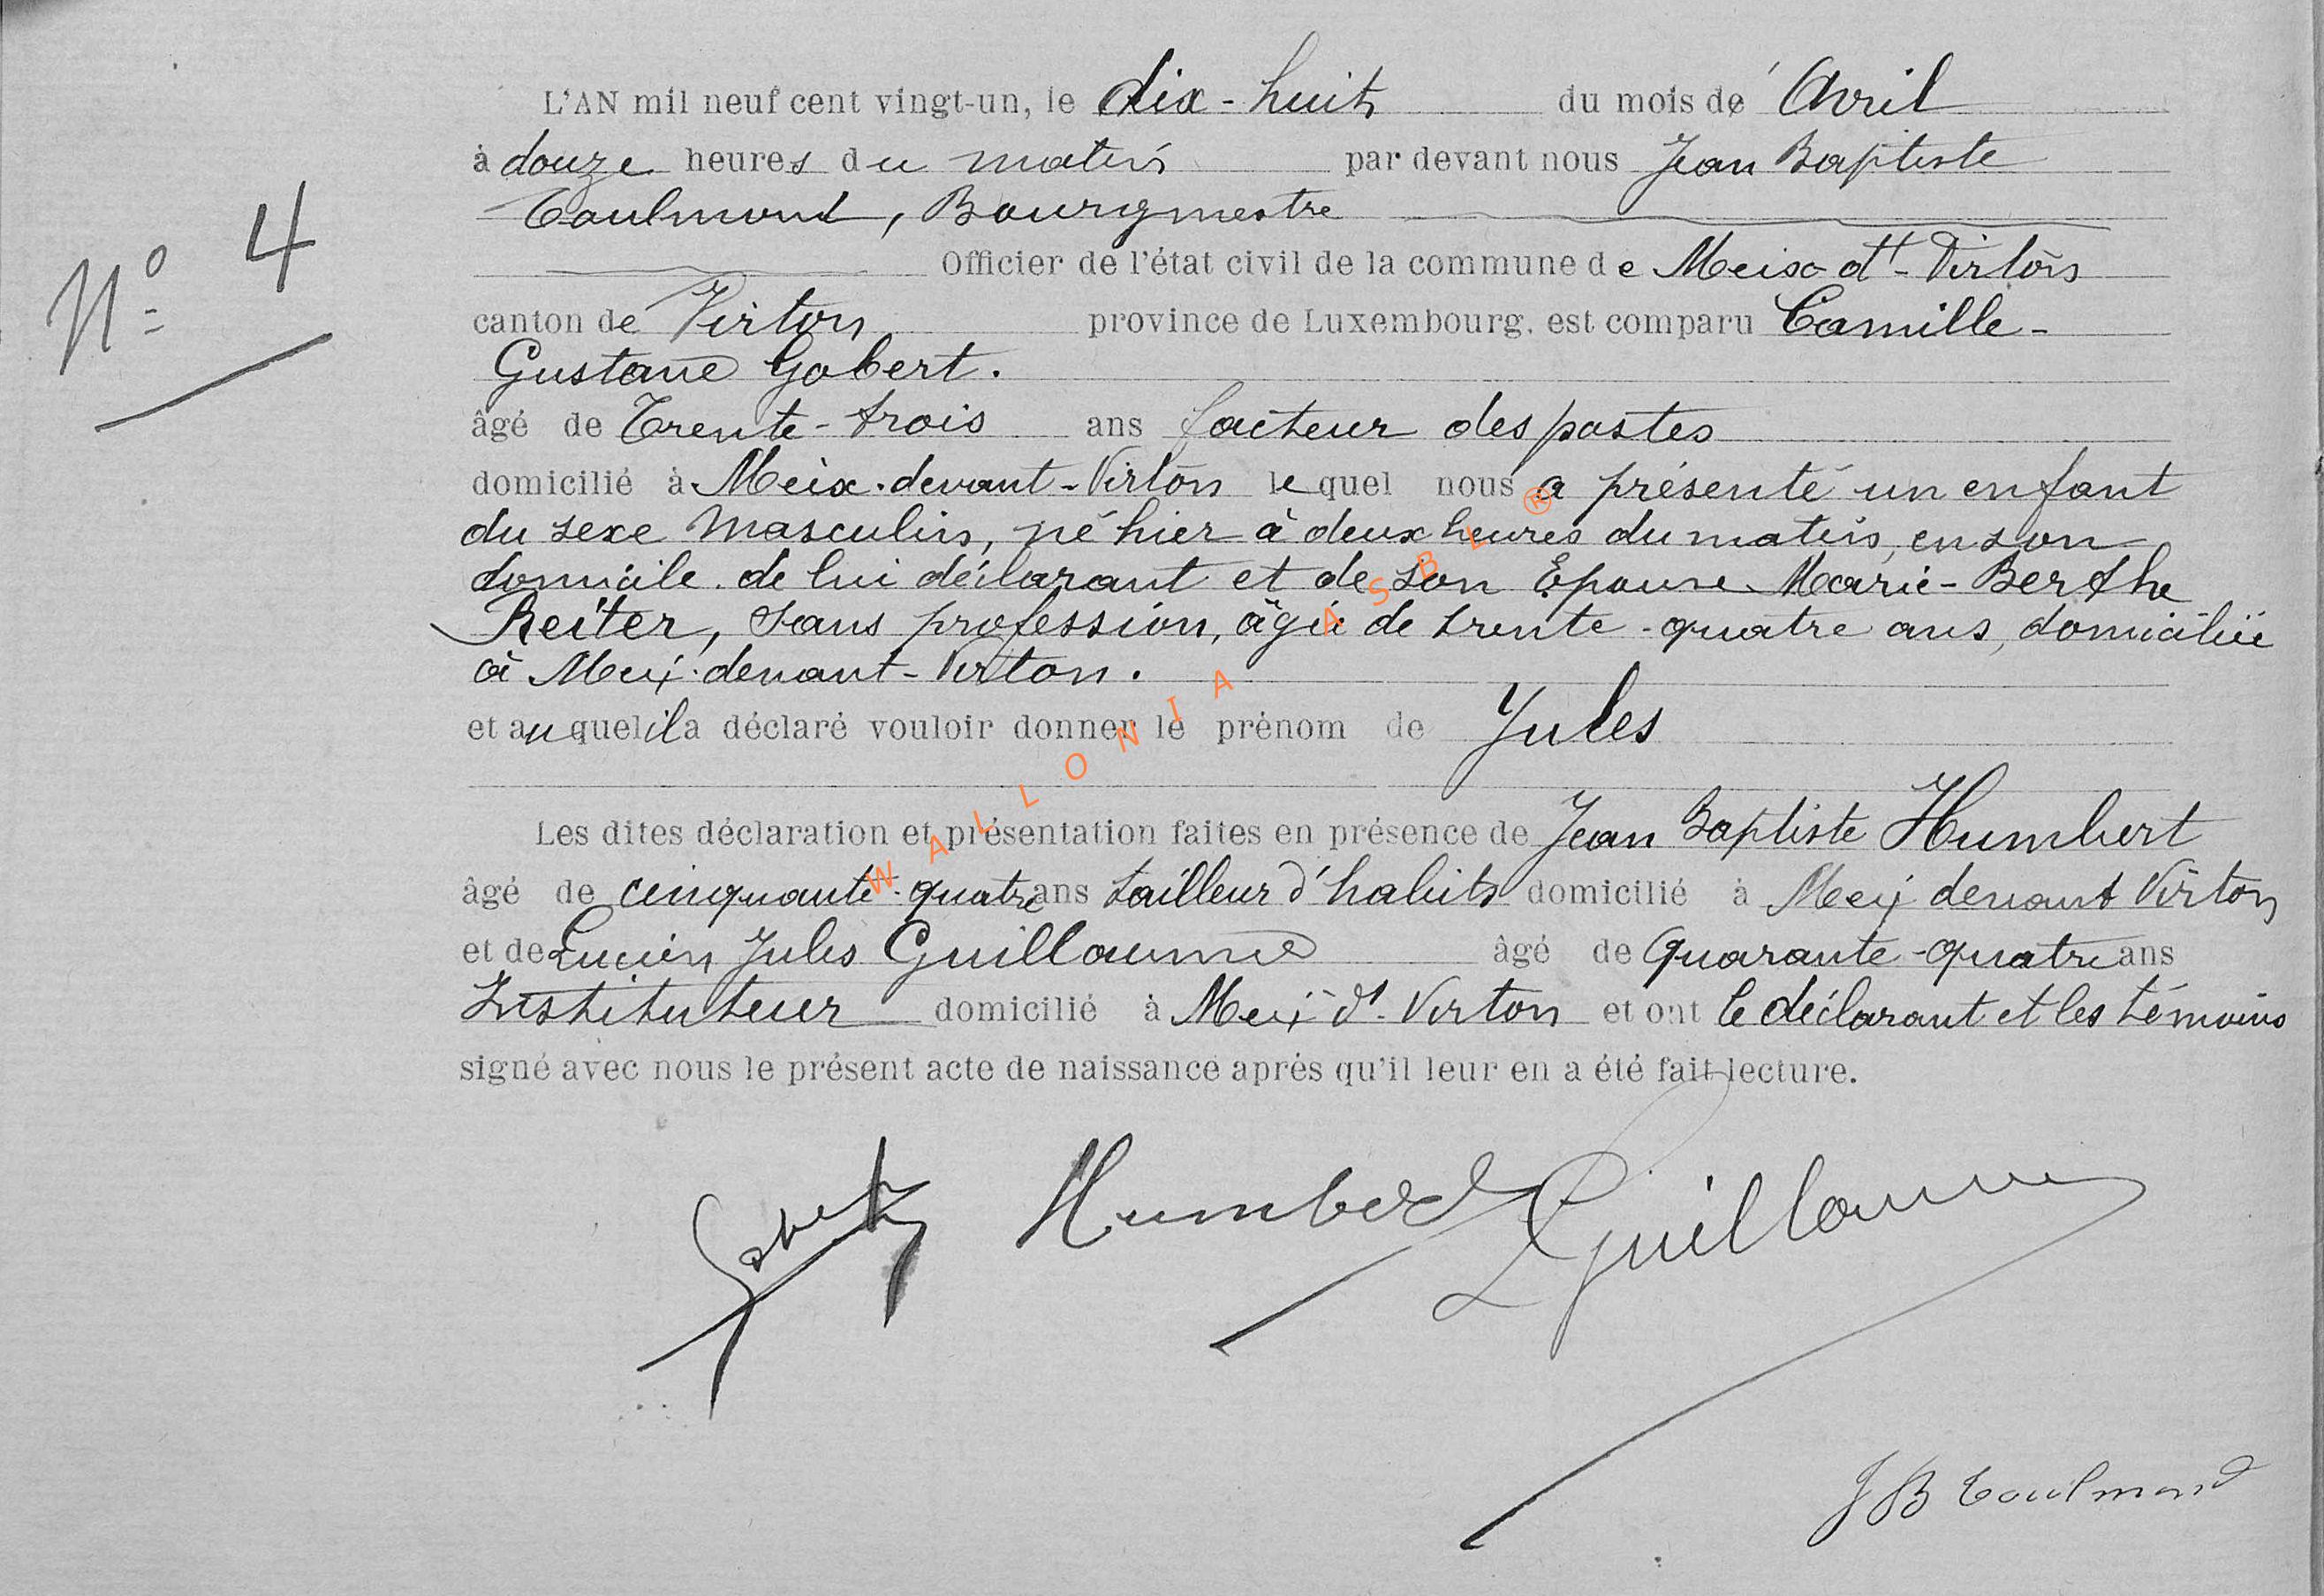 L'AN mil neuf cent vingt-un, le dix-huit du mois de Avril
à douze heures du matin par devant nous Jean Baptiste
Toulmond, Bourgmestre
Officier de l'état civil de la commune de Meix-dt-Virton
N° 4
canton de Virton province de Luxembourg, est comparu Camille-
Gustave Gobert.
âgé de Trente-trois ans facteur des postes
domicilié à Meix-devant-Virton lequel nous a présenté un enfant
du sexe masculin, né hier à deux heures du matin, en son
domicile de lui déclarant et de son Epouse Marie-Berthe
Reiter, sans profession, âgée de trente-quatre ans, domiciliée
à Meix-devant-Virton.
et auquel il a déclaré vouloir donner le prénom de Jules
Les dites déclaration et présentation faites en présence de Jean Baptiste Humbert
âgé de cinquante-quatre ans tailleur d'habits domicilié à Meix devant Virton
et de Lucien Jules Guillaume âgé de quarante-quatre ans
Instituteur domicilié à Meix-dt-Virton et ont le déclarant et les témoins
signé avec nous le présent acte de naissance après qu'il leur en a été fait lecture.
Gobert Humbert LGuillaume
JB Toulmond
WALLONIA ASBL ®